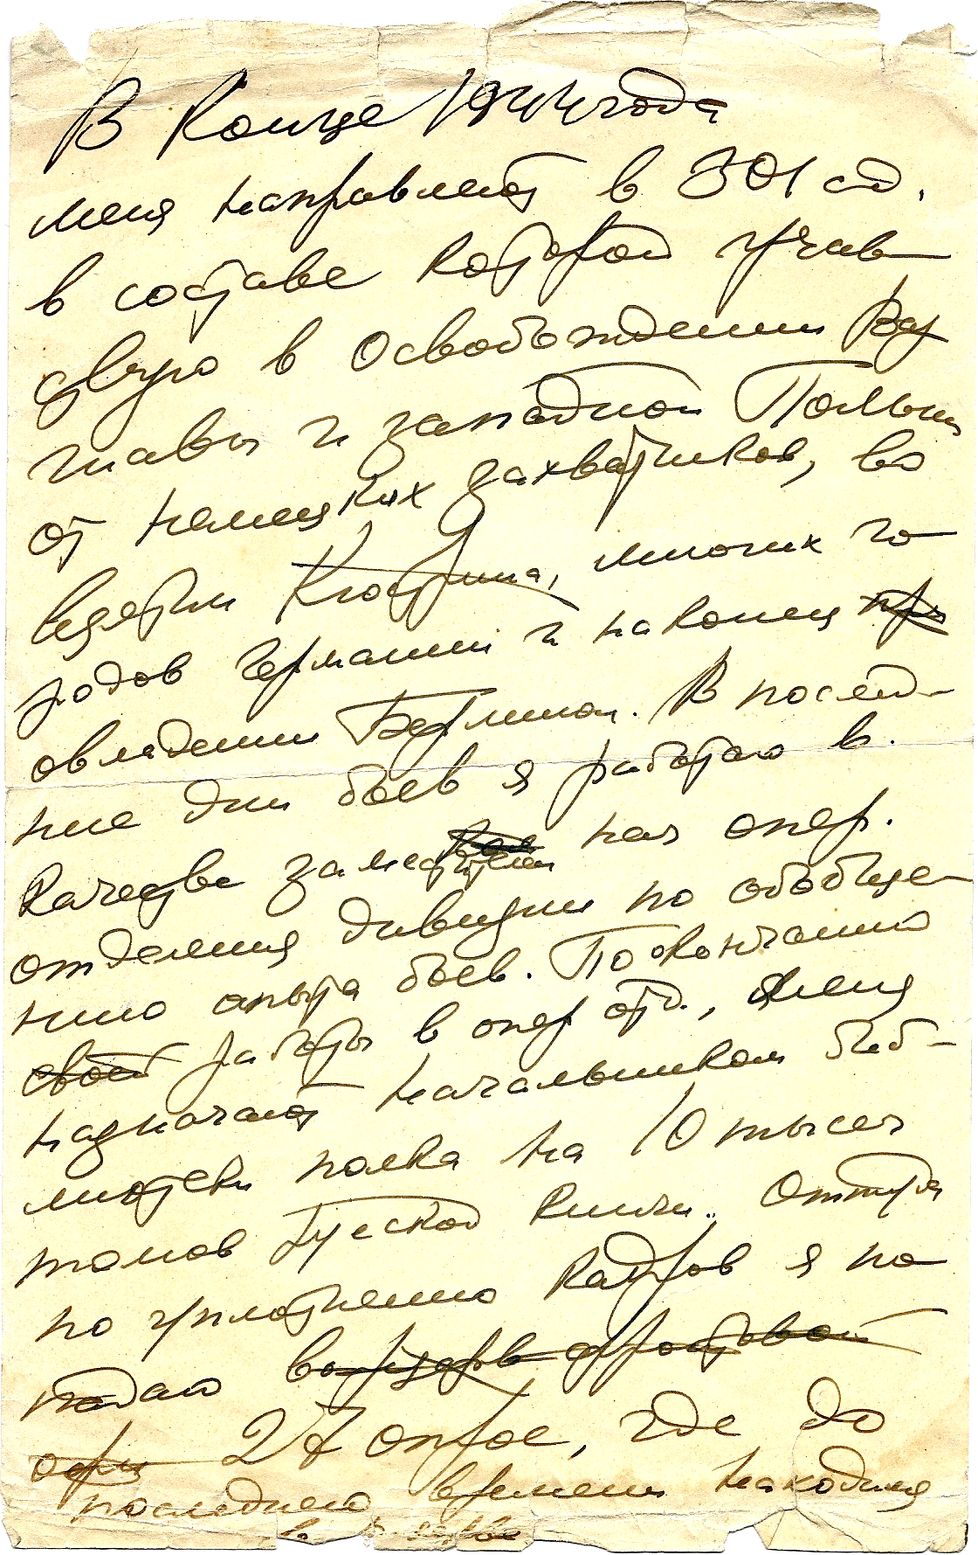 В Конце 1944 года
меня направляют в 301 сд.
в составе которой учав-
ствую в освобождении Вар
шавы и западной Польши
от немецких захватчиков, во
взятии Кюстрина, многих го-
родов Германии и наконец
овладении Берлином. В послед-
ние дни боев я работаю в
качестве заместителем нач опер.
отделения дивизии по обобще-
нию опыта боев. По окончанию
своей работы в опер отд., меня
назначают начальником биб-
лиотеки полка на 10 тысяч
томов Русской Книги. Оттуда
по уплотнению кадров я по-
падаю в резерв фронтовой
27 опрос, где до
последнего времени находился
в резерве